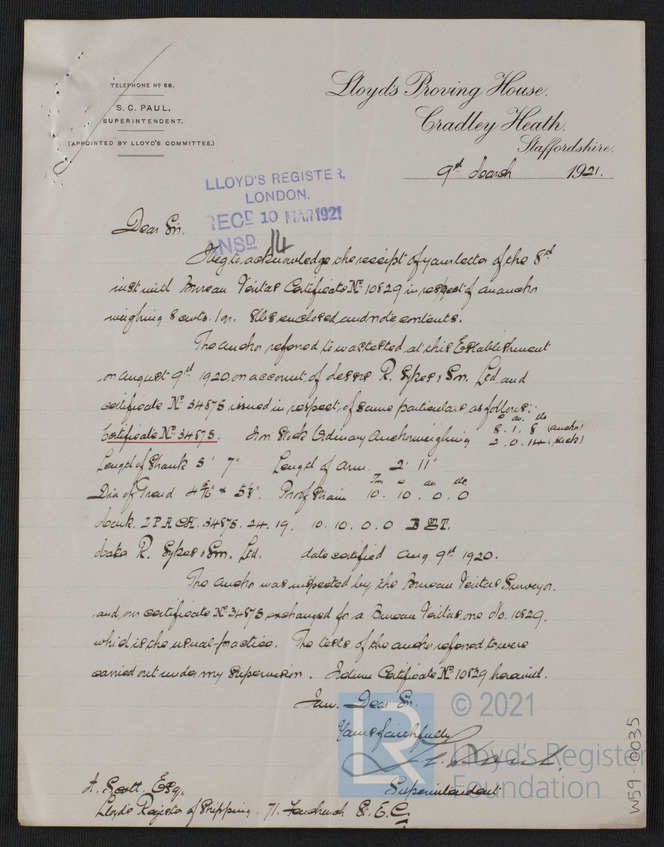 TELEPHONE Nº 68.
S. C. PAUL,
SUPERINTENDENT.
(APPOINTED BY LLOYD'S COMMITTEE.)
Lloyd's Proving House,
Cradley Heath,
Staffordshire.
9th March 1921.
LLOYD'S REGISTER,
LONDON.
RECD 10 MAR 1921
ANSD 14
Dear Sir,
I beg to acknowledge the receipt of your letter of the 8th
inst with Bureau Veritas Certificate Nº 10829 in respect of an anchor
weighing 8 cwts. 1 qr. 8 lbs enclosed and note contents.
The anchor referred to was tested at this Establishment
on August 9th 1920, on account of Messrs R. Sykes & Son. Ltd, and
certificate Nº 34875 issued in respect of same particulars as follows:-
Certificate Nº 34875. Iron Stock Ordinary Anchor weighing 8. 1. 8 (anchor)
2. 0. 14 (stock)
Length of Shank 5' 7" Length of Arm 2' 11"
Dia of Trend Proof Strain 10. 10. 0. 0
Mark. 34875. 24. 19. 10. 10. 0. 0
Make R. Sykes & Son. Ltd. date certified Aug 9th 1920.
The anchor was inspected by the Bureau Veritas Surveyor.
and our certificate Nº 34875 exchanged for a Bureau Veritas one No. 10829,
which is the usual practice. The tests of the anchor referred to were
carried out under my Supervision. I return Certificate Nº 10829 herewith.
I am. Dear Sir.
Yours faithfully
S. C. Paul
Superintendent
A. Scott, Esq.
Lloyds Register of Shipping. 71. Fenchurch St. E.C.
W59-0035
LR
© 2021
Lloyd's Register
Foundation